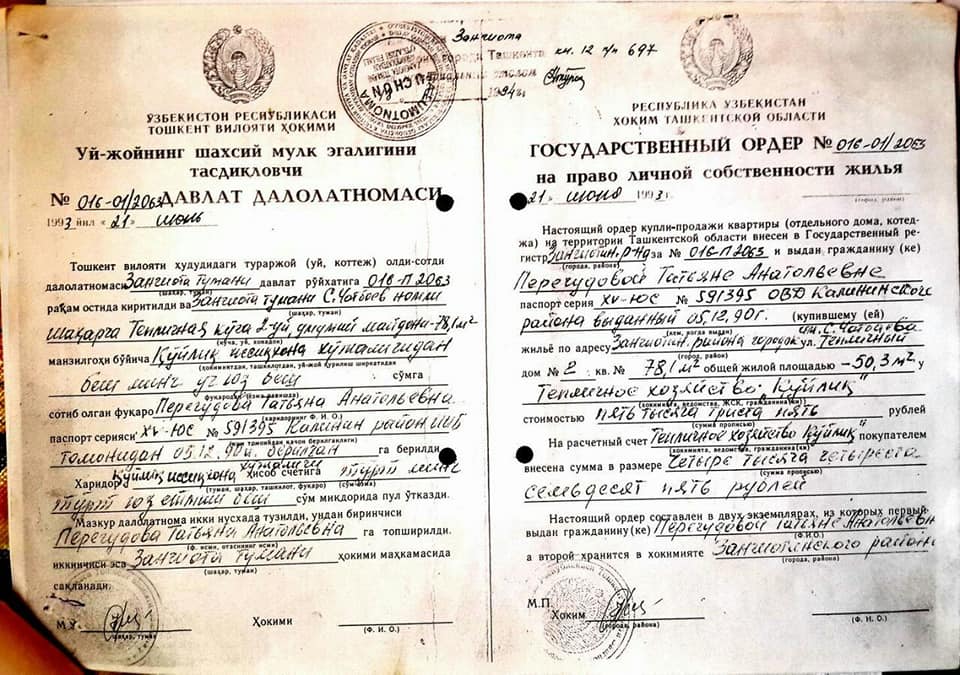 Зангиота
кн. 12 п/п 697
города Ташкента
1994г.
МАЪЛУМОТНОМА
УЧУН
ЎЗБЕКИСТОН РЕСПУБЛИКАСИ
ТОШКЕНТ ВИЛОЯТИ ҲОКИМИ
Уй-жойнинг шахсий мулк эгалигини
тасдиқловчи
№ 016-01/2063 ДАВЛАТ ДАЛОЛАТНОМАСИ
1993 йил «21» июнь
Тошкент вилояти ҳудудидаги тураржой (уй, коттеж) олди-сотди
далолатномаси Зангиота тумани давлат рўйхатига 016-П 2063
(шаҳар, туман)
рақам остида киритилди ва Зангиота тумани С.Чотбоев номли
(шаҳар, туман)
шаҳарча Тепличная кўча 2-уй, умумий майдони-78,1 м²
(кўча, уй, хонадон)
манзилгоҳи бўйича Қўйлиқ иссиқхона хўжалигидан
(ҳокимиятдан, ташкилотдан, уй-жой қурилиш ширкатидан
беш минг уч юз беш сўмга
фуқародан) (сумма ёзма равишда)
сотиб олган фуқаро Перегудова Татьяна Анатольевна
(харидорнинг Ф. И. О.)
паспорт серияси XV-ЮС № 591395 Калинин район ИИБ
(ким томонидан қачон берилганлиги)
томонидан 05.12.90й. берилган га берилди.
Харидор Қўйлиқ иссиқхона хўжалиги ҳисоб счетига тўрт минг
(туман, шаҳар, ташкилот, фуқаро) (сўм)
тўрт юз етмиш беш сўм миқдорида пул ўтказди.
Мазкур далолатнома икки нусхада тузилди, ундан биринчиси
Перегудова Татьяна Анатольевна га топширилди.
(ф. исми, отасининг исми)
иккинчиси эса Зангиота тумани ҳокими маҳкамасида
(шаҳар, туман)
сақланади.
М.Ў.
шаҳар, туман
Ҳокими
(Ф. И. О.)
РЕСПУБЛИКА УЗБЕКИСТАН
ХОКИМ ТАШКЕНТСКОЙ ОБЛАСТИ
ГОСУДАРСТВЕННЫЙ ОРДЕР № 016-01/2063
на право личной собственности жилья
«21» июня 1993 г.
(город, район)
Настоящий ордер купли-продажи квартиры (отдельного дома, котед-
жа) на территории Ташкентской области внесен в Государственный ре-
гистр Зангиотин. р-на за № 016-П2063 и выдан гражданину (ке)
(города, района)
Перегудовой Татьяне Анатольевне
паспорт серия XV-ЮС № 591395 ОВД Калининского
района выданный 05.12.90г. (купившему (ей)
(кем, когда выдан)
жильё по адресу Зангиотин. района городок им. С. Чотбоева ул. Тепличный
(город, район)
дом № 2 кв. № 78,1 м² общей жилой площадью -50,3м² у
Тепличное хозяйство "Куйлик"
(хокимията, ведомства, ЖСК, гражданина (ки)
стоимостью пять тысяча триста пять рублей
(сумма прописью)
На расчетный счет Тепличное хозяйство Куйлик" покупателем
(хокимията, ведомства, гражданина (ки)
внесена сумма в размере Четыре тысяча четыреста
(сумма прописью)
семьдесят пять рублей
Настоящий ордер составлен в двух экземплярах, из которых первый
выдан гражданину (ке) Перегудовой Татьяне Анатольевне
(Ф.И.О.)
а второй хранится в хокимияте Зангиотинского района
(города, района)
М.П.
Хоким
(города, района)
(Ф. И. О.)